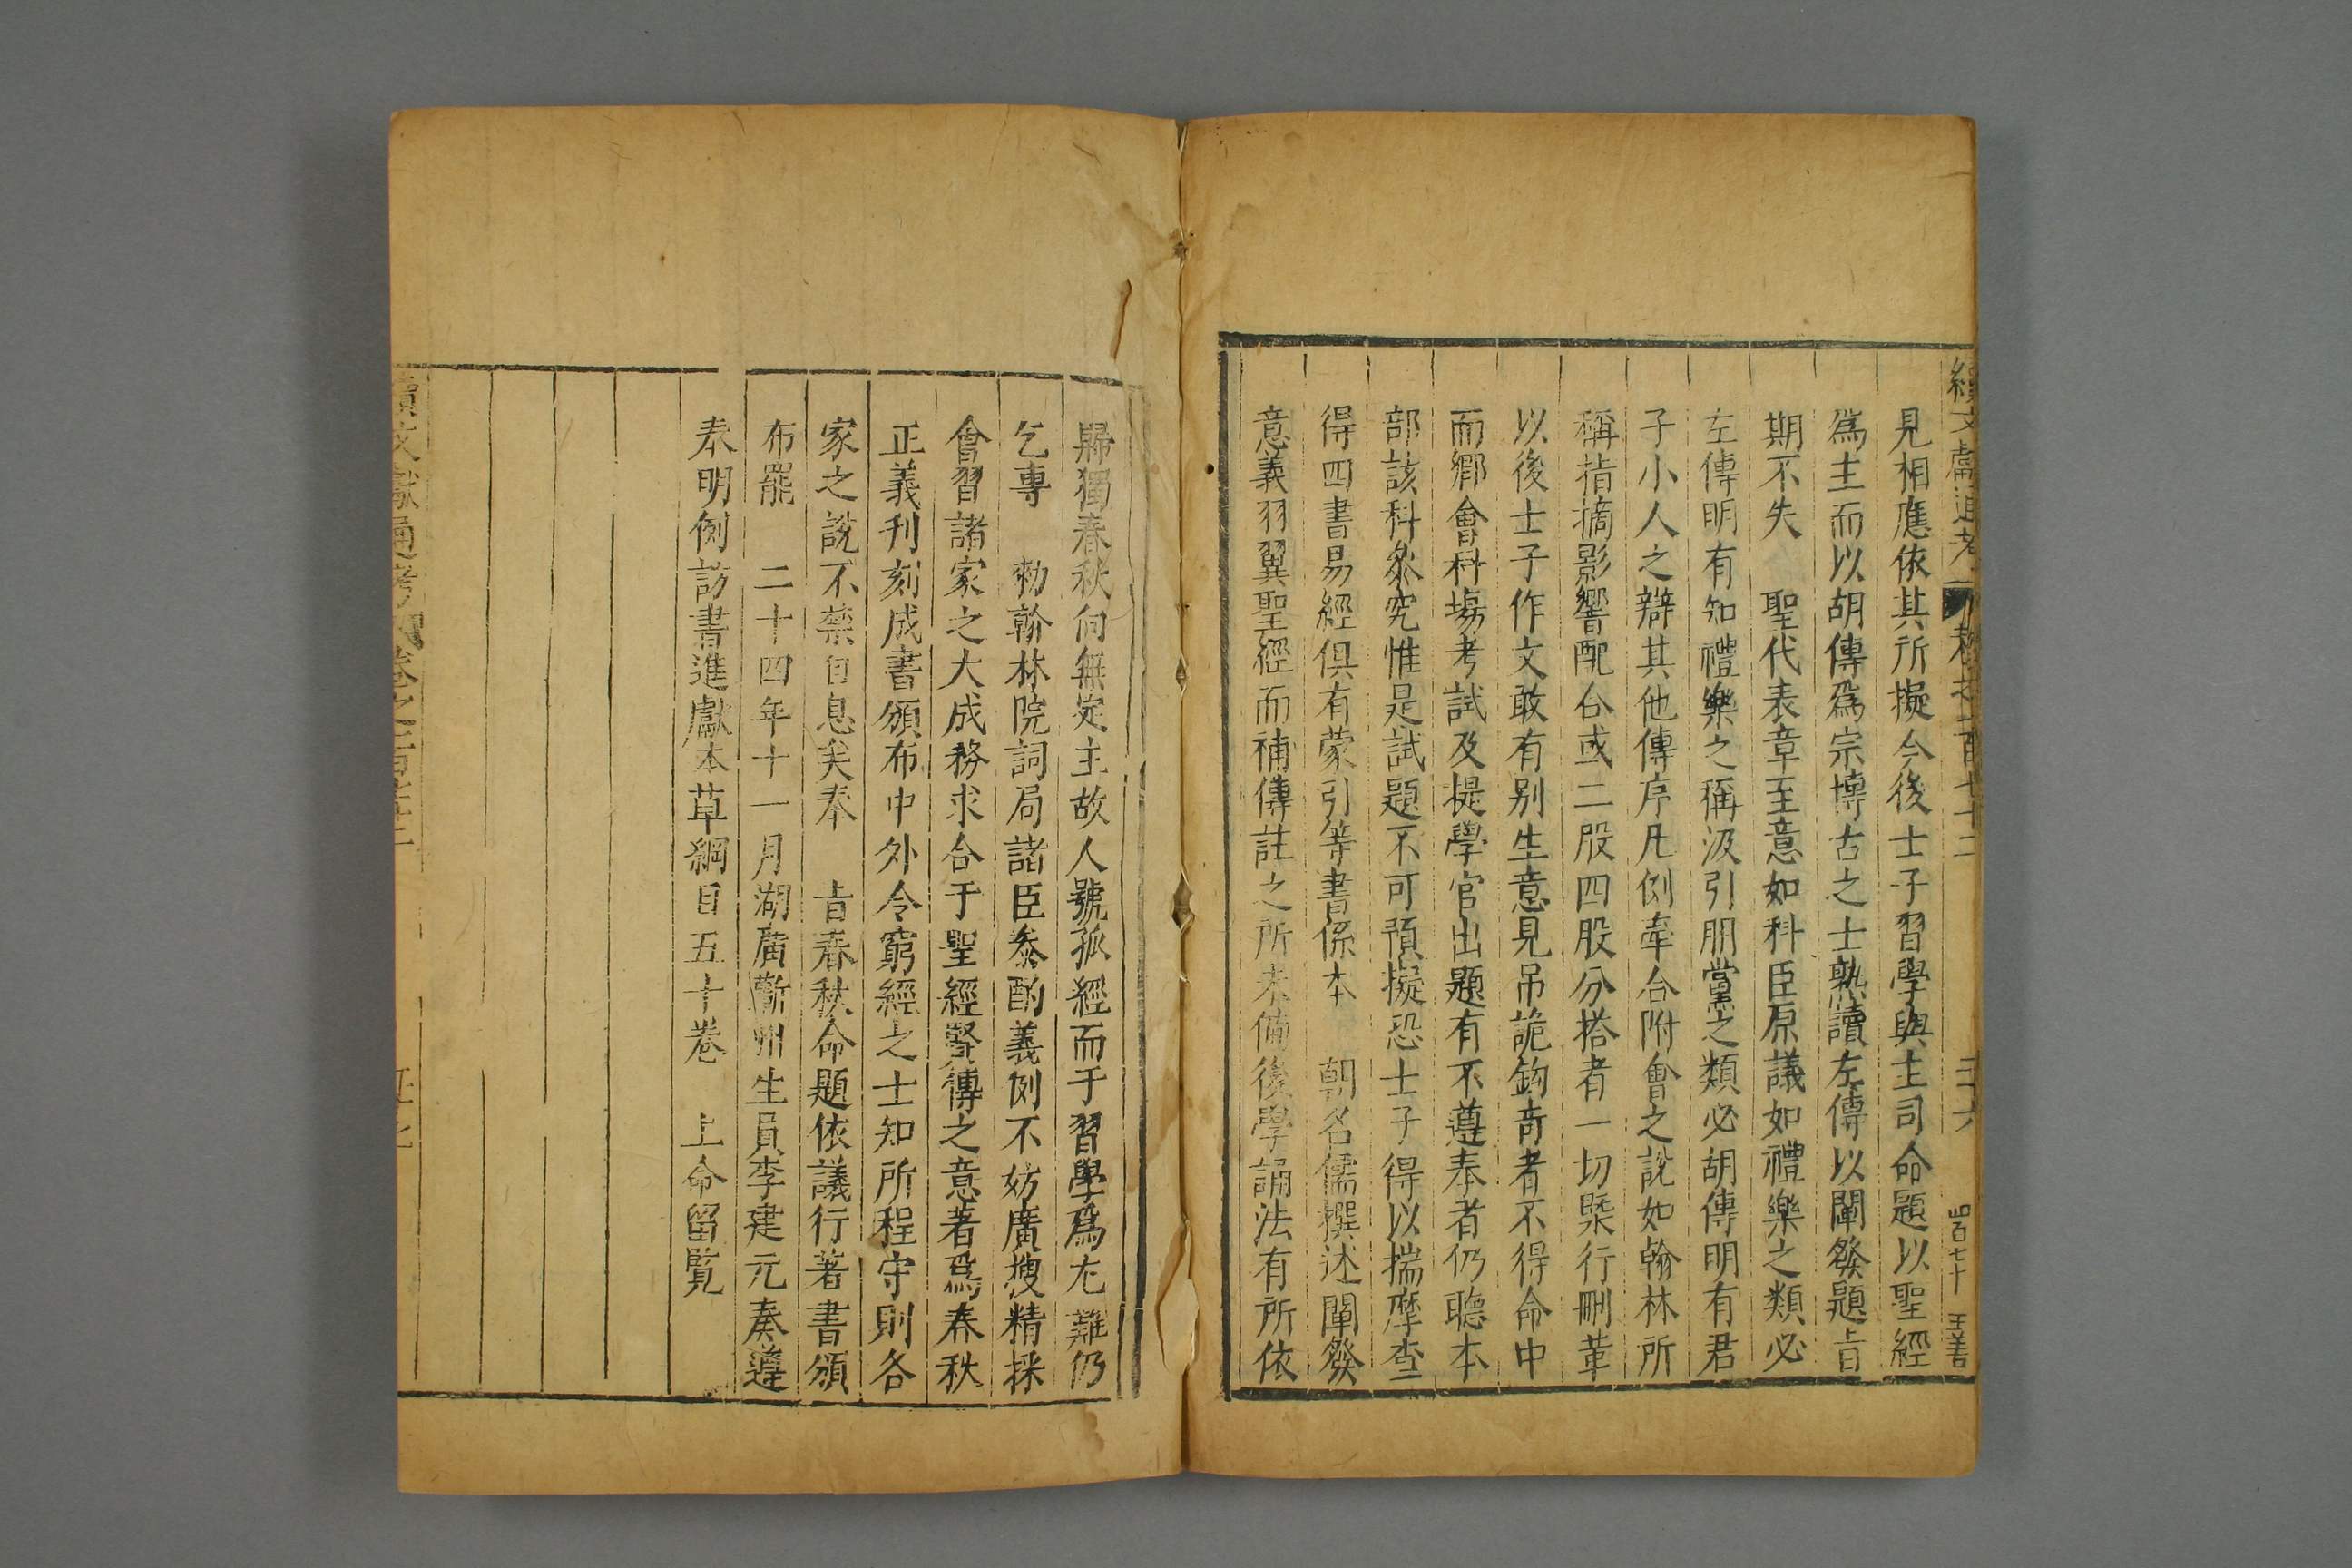 見相應依其所擬今後士子習學與主司命題以聖經
爲主而以胡傳爲宗博古之士熟讀左傳以闡發題㫖
期不失 聖代表章至意如科臣原議如禮樂之類必
左傳明有知禮樂之稱汲引朋黨之類必胡傳明有君
子小人之辯其他傳序凡例牽合附會之說如翰林所
稱指摘影響配合或二股四股分搭者一切槩行刪革
以後士子作文敢有别生意見吊詭鈎竒者不得命中
而鄉會科塲考試及提學官出題有不遵奉者仍聽本
部該科叅究惟是試題不可預擬恐士子得以揣摩查
得四書易經俱有蒙引等書係本 朝名儒撰述闡發
意義羽翼聖經而補傳註之所未備後學誦法有所依
歸獨春秋向無定主故人號孤經而于習學爲尤難仍
乞專 勑翰林院詞局諸臣叅酌義例不妨廣搜精採
會習諸家之大成務求合于聖經賢傳之意著爲春秋
正義刊刻成書頒布中外令窮經之士知所程守則各
家之說不禁自息矣奉 㫖春秋命題依議行著書頒
布罷 二十四年十一月湖廣蘄州生員李建元奏遵
奉明例訪書進獻本草綱目五十卷 上命留覽
續文獻通考